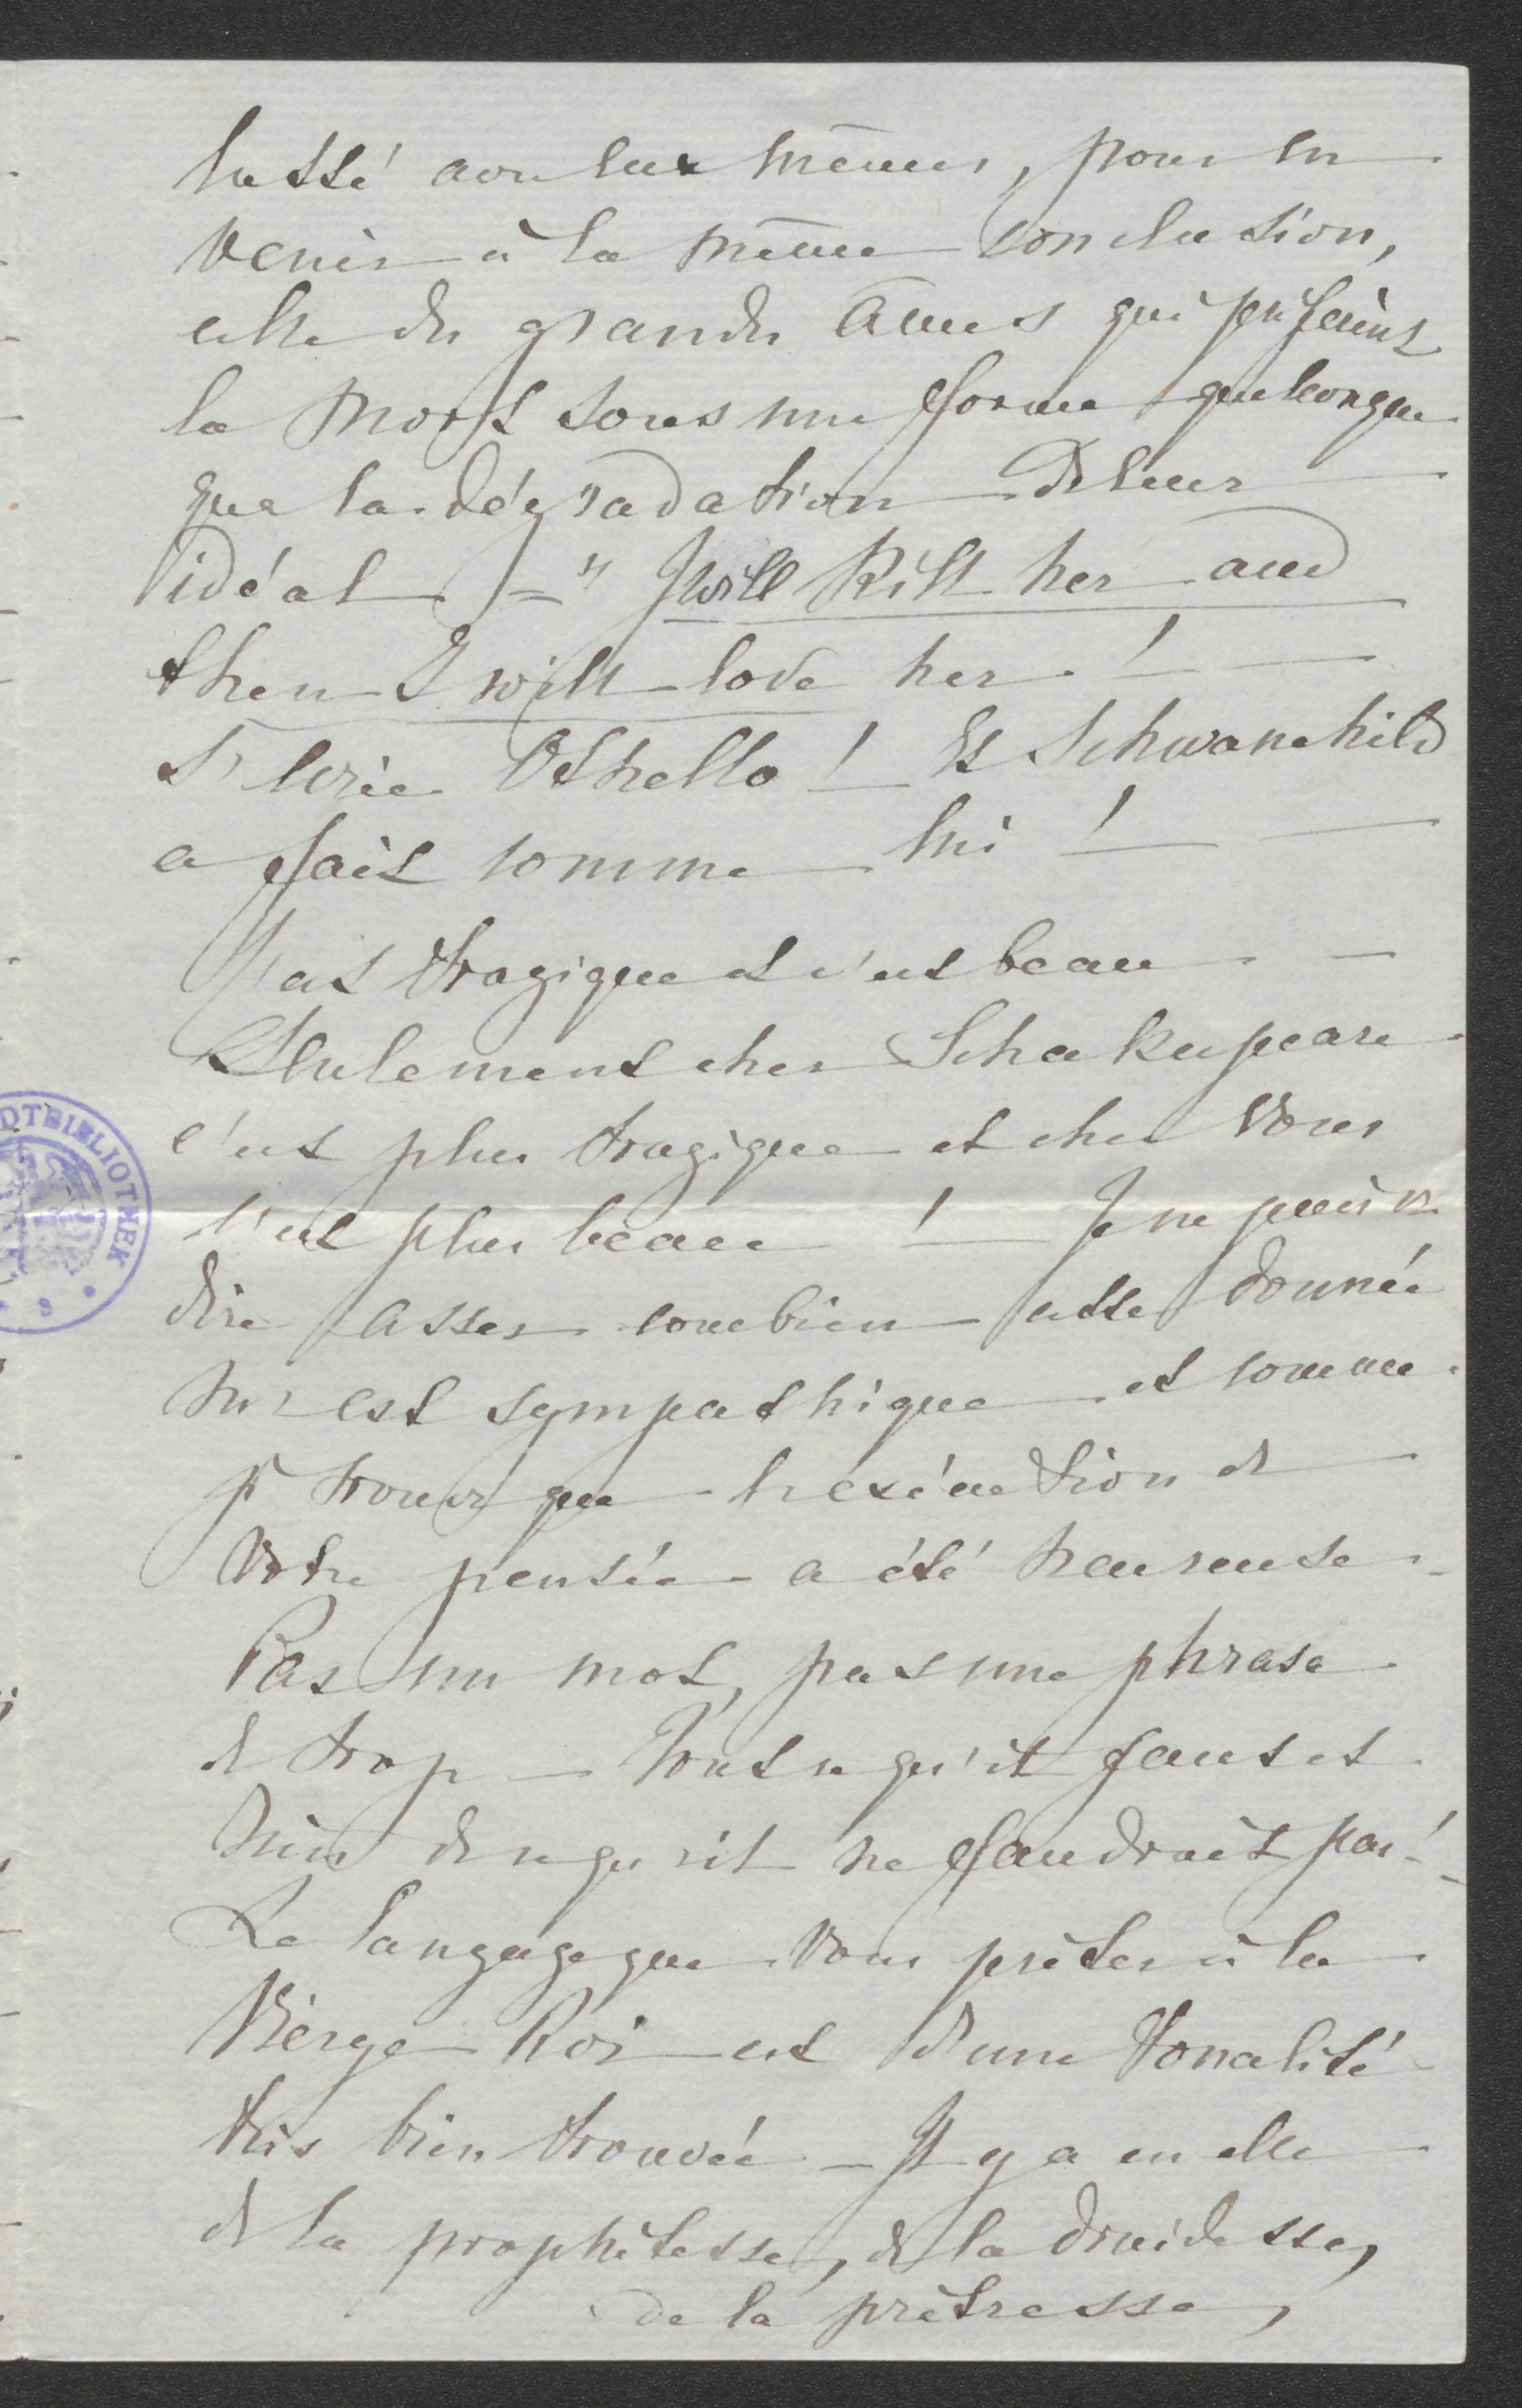 lutté avec eux mêmes, pour en
venir à la même conclusion,
celle des grandes âmes qui préfèrent
la mort sous une forme quelconque
que la dégradation de leur
idéal = " I will kill her and
then I will love her !
s'écrie Othello ! Et Schwanehild
a fait comme lui !
C'est tragique et c'est beau
Seulement chez Schakespeare
c'est plus tragique et chez vous
c'est plus beau ! Je ne puis vs
dire assez combien cette donnée
m'est sympathique et comme
je trouve que l'exécution de
votre pensée a été heureuse.
Pas un mot, pas une phrase
de trop — Tout ce qu'il faut et
rien de ce qu'il ne faudrait pas !
Le langage que vous prêtez à la
Vierge Roi est d'une tonalité
très bien trouvée — Il y a en elle
de la prophétesse, de la druidesse,
de la prêtresse,
DTBIBLIOTHEK